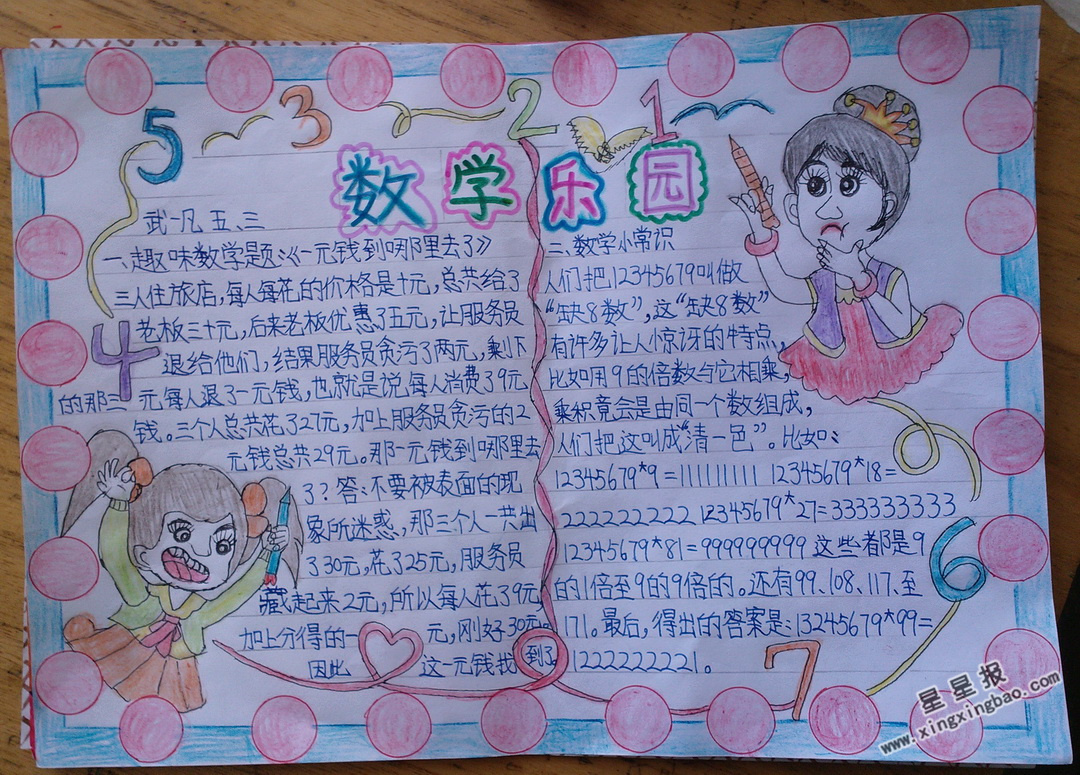 5 3 2 1
数学乐园
武一凡 五、三
一、趣味数学题:《一元钱到哪里去了》
三人住旅店,每人每花的价格是十元,总共给了
老板三十元,后来老板优惠了五元,让服务员
退给他们,结果服务员贪污了两元,剩下
4
的那三元每人退了一元钱,也就是说,每人消费了9元
钱。三个人总共花了27元,加上服务员贪污的2
元钱总共29元。那一元钱到哪里去
了?答:不要被表面的现
象所迷惑,那三个人一共出
了30元,花了25元,服务员
藏起来2元,所以每人花了9元,
加上分得的一元,刚好30元。
因此这一元钱找到了
二、数学小常识
人们把12345679叫做
“缺8数”,这“缺8数”
有许多让人惊讶的特点,
比如用9的倍数与它相乘,
乘积竟会是由同一个数组成,
人们把这叫成“清一色”。比如:
12345679*9=111111111 12345679*18=
222222222 12345679*27=333333333
12345679*81=999999999 这些都是9
的1倍至9的9倍的。还有99、108、117、至
171。最后,得出的答案是:13245679*99=
1222222221。
6
7
星星报
www.xingxingbao.com